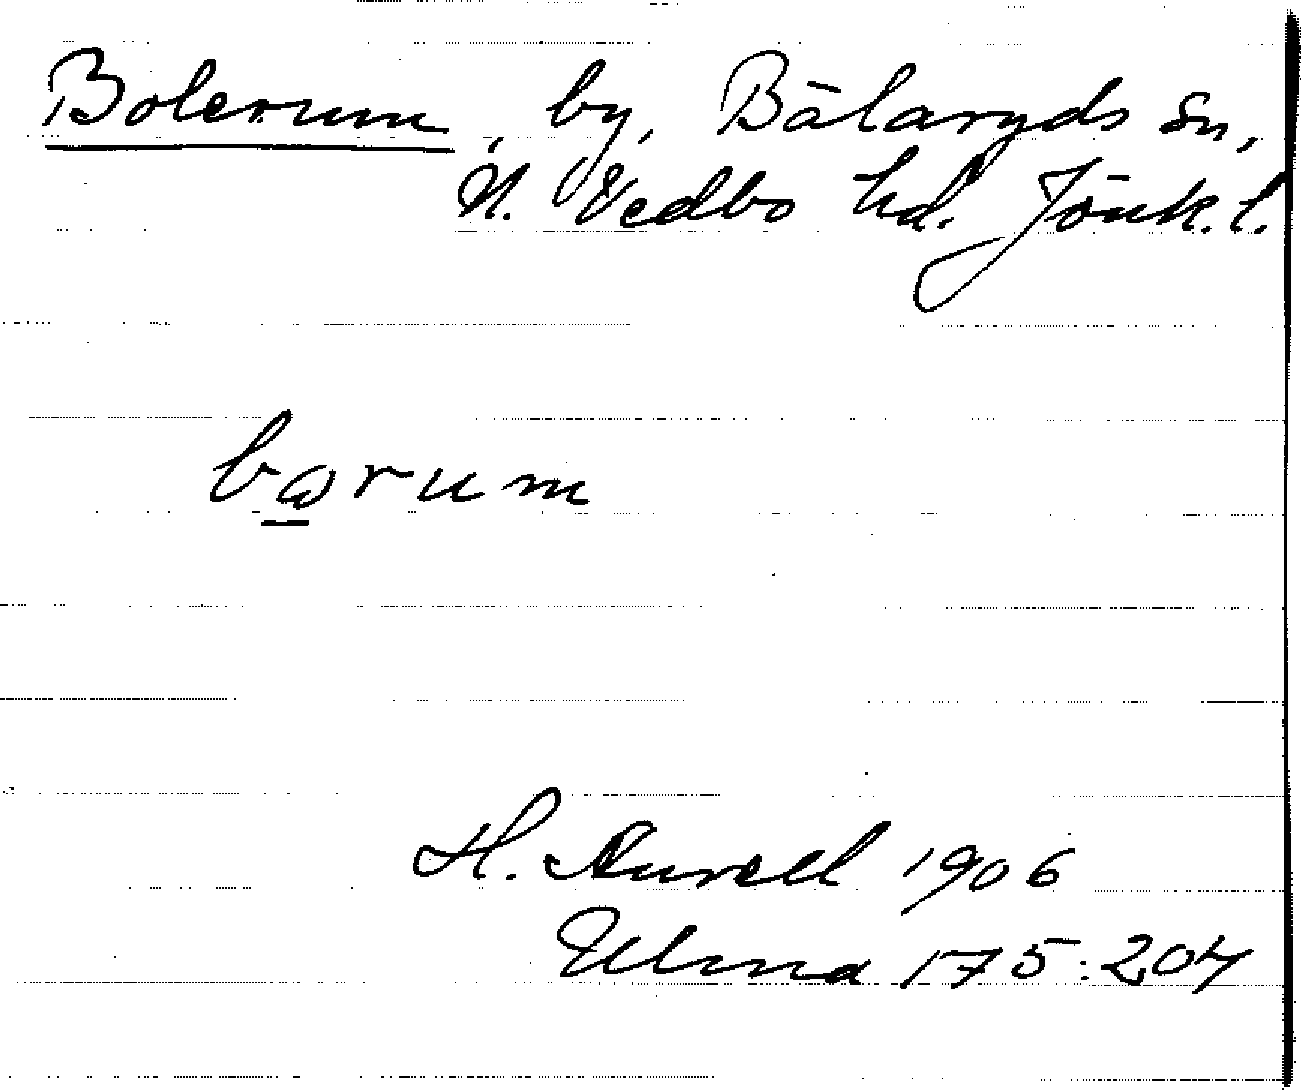 Bolerum, by, Bälaryds sn,
N. Vedbo hd. Jönk. l.
bⱥrum
H. Aurell 1906
Ulma 175:204